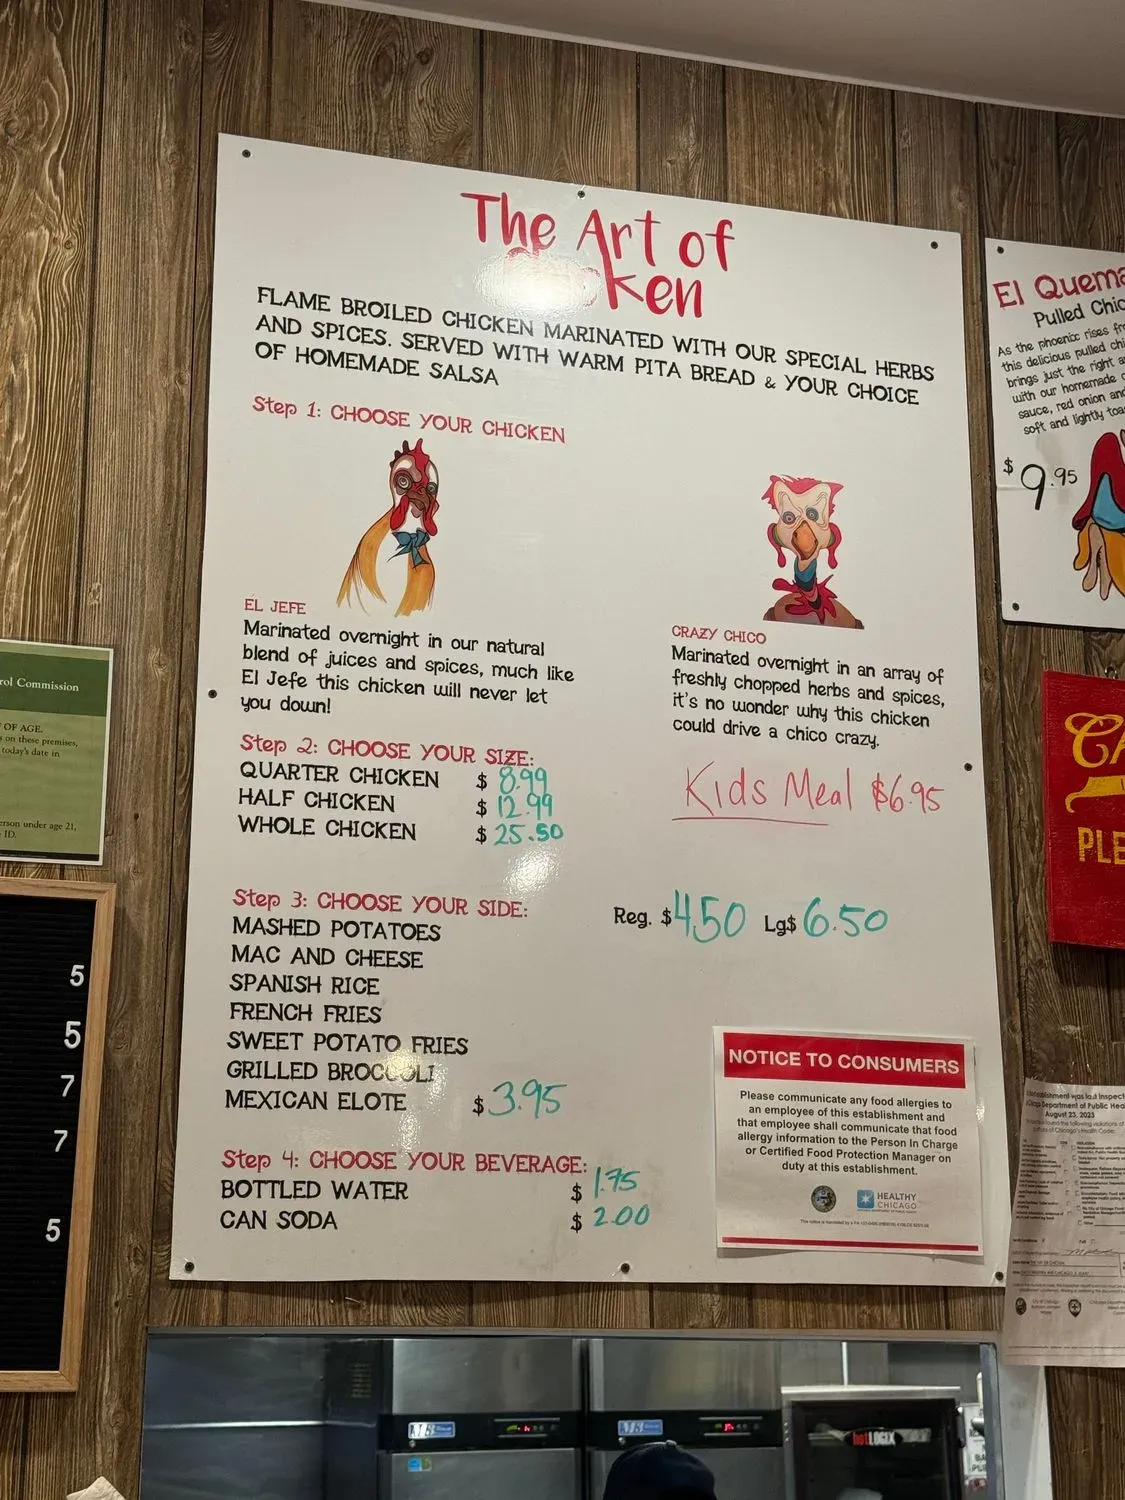 The Art of
Chicken
FLAME BROILED CHICKEN MARINATED WITH OUR SPECIAL HERBS
AND SPICES. SERVED WITH WARM PITA BREAD & YOUR CHOICE
OF HOMEMADE SALSA
Step 1: CHOOSE YOUR CHICKEN
EL JEFE
Marinated overnight in our natural
blend of juices and spices, much like
El Jefe this chicken will never let
you down!
CRAZY CHICO
Marinated overnight in an array of
freshly chopped herbs and spices,
it's no wonder why this chicken
could drive a chico crazy.
Step 2: CHOOSE YOUR SIZE:
QUARTER CHICKEN $ 8.99
HALF CHICKEN $ 12.99
WHOLE CHICKEN $ 25.50
Kids Meal $6.95
Step 3: CHOOSE YOUR SIDE:
Reg. $4.50 Lg$ 6.50
MASHED POTATOES
MAC AND CHEESE
SPANISH RICE
FRENCH FRIES
SWEET POTATO FRIES
GRILLED BROCCOLI
MEXICAN ELOTE $3.95
Step 4: CHOOSE YOUR BEVERAGE:
BOTTLED WATER $ 1.75
CAN SODA $ 2.00
NOTICE TO CONSUMERS
Please communicate any food allergies to
an employee of this establishment and
that employee shall communicate that food
allergy information to the Person In Charge
or Certified Food Protection Manager on
duty at this establishment.
HEALTHY
CHICAGO
El Quema
Pulled Chic
As the phoenix rises fr
this delicious pulled chi
brings just the right a
with our homemade
sauce, red onion and
soft and lightly toa
$ 9.95
PLE
rol Commission
OF AGE.
on these premises,
today's date in
erson under age 21,
ID.
5
5
7
7
5
Department of Public Hea
August 23, 2023
hotLOGIX